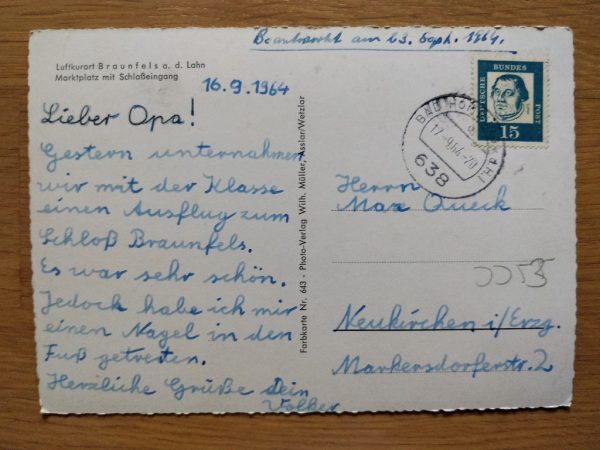 Beantwortet am 23. Sept. 1964.
Luftkurort Braunfels a. d. Lahn
Marktplatz mit Schloßeingang
16.9.1964
Lieber Opa!
Gestern unternahmen
wir mit der Klasse
einen Ausflug zum
Schloß Braunfels.
Es war sehr schön.
Jedoch habe ich mir
einen Nagel in den
Fuß getreten.
Herzliche Grüße Dein
Volker
Farbkarte Nr. 643 - Photo-Verlag Wilh. Müller, Asslar/Wetzlar
DEUTSCHE
BUNDES
POST
15
BAD HOM
638
Herrn
Max Queck
Neukirchen i/Erzg.
Markersdorferstr. 2